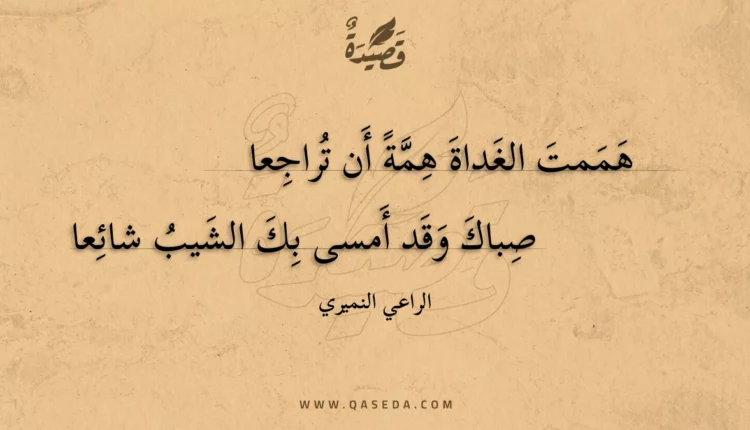 قَصِيدَةٌ
هَمَمتَ الغَداةَ هِمَّةً أَن تُراجِعا
صِباكَ وَقَد أَمسى بِكَ الشَيبُ شائِعا
الراعي النميري
WWW.QASEDA.COM